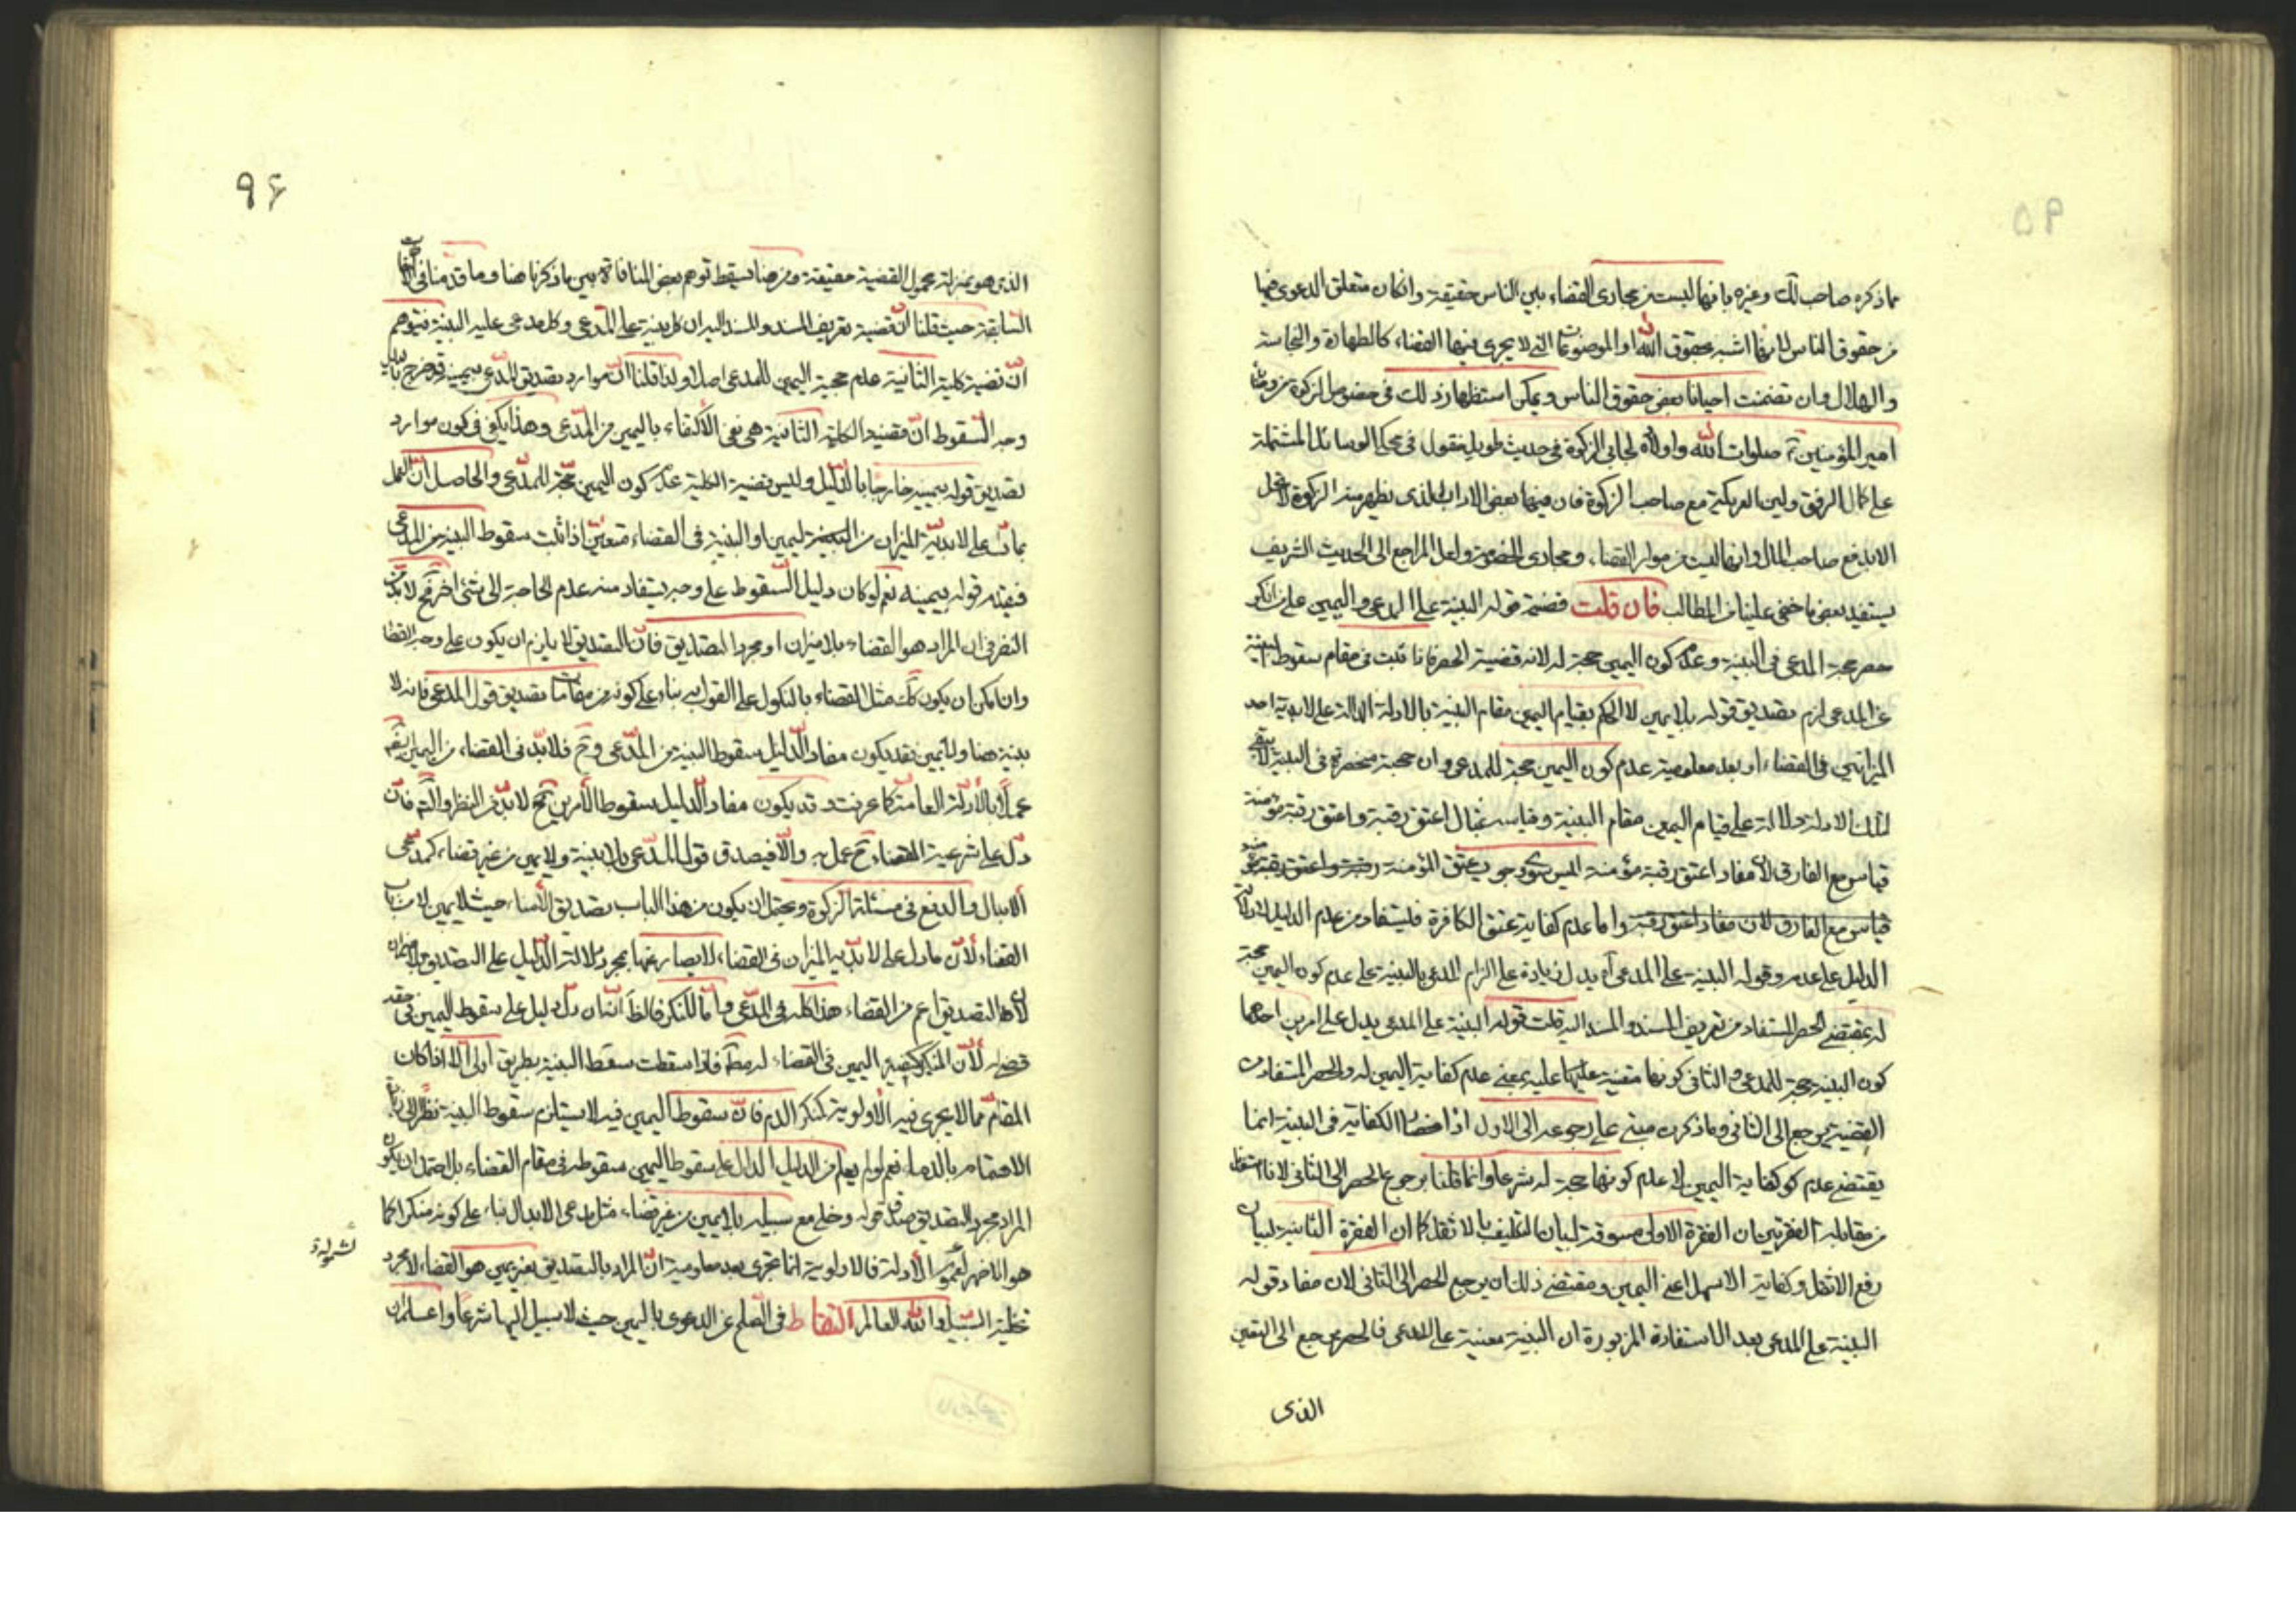 ٩٥
ما ذكره صاحب لك وغيره بانها ليست من مجارى القضاء بين الناس حقيقة وان كان متعلق الدعوى فيها
من حقوق الناس لانها اشبه بحقوق الله او الموضوعات التى لا يجرى فيها القضاء كالطهارة والنجاسة
والهلال وان تضمنت احيانا بعض حقوق الناس ويمكن استظهار ذلك فى خصوص الزكوة من
امير المؤمنين صلوات الله واولاده لجابى الزكوة فى حديث طويل منقول فى محكى الوسائل المشتملة
على كمال الرفق ولين العريكة مع صاحب الزكوة فان فيها بعض الاداب الذى يظهر منه الزكوة
الا بدفع صاحب المال وانها ليست من موارد القضاء ومجارى الخصومة ولعل المراجع الى الحديث الشريف
يستفيد بعض ما خفى علينا من المطالب فان قلت قضية قوله البينة على المدعى واليمين على من انكر
حصر حجة المدعى فى البينة وعدم كون اليمين حجة له لانه قضية الحصر فاذا ثبت فى مقام سقوط البينة
عن المدعى لزم تصديق قوله بلا يمين لا الحكم بقيام اليمين مقام البينة بالادلة الدالة على لابدية احد
الميزانين فى القضاء اذ بعد معلومية عدم كون اليمين حجة للمدعى وان حجته منحصرة فى البينة لا يبقى
لتلك الادلة دلالة على قيام اليمين مقام البينة وقياسه بمثال اعتق رقبة واعتق رقبة مؤمنة
قياس مع الفارق لان مفاد اعتق رقبة مؤمنة ليس سوى وجوب عتق المؤمنة رقبة واعتق رقبة
قياس مع الفارق لان مفاد اعتق رقبة واما عدم كفاية عتق الكافرة فليستفاد من عدم الدليل
الدليل على عدمه وقوله البينة على المدعى يدل زيادة على الزام المدعى بالبينة على عدم كون اليمين حجة
له بمقتضى الحصر المستفاد من تعريف المسند والمسند اليه قلت قوله البينة على المدعى يدل على امرين احدهما
كون البينة حجة للمدعى والثانى كونها متعينة عليه بمعنى عدم كفاية اليمين له والحصر المستفاد من
القضية يرجع الى الثانى وما ذكرت مبنى على رجوعه الى الاول اذ الكفاية فى البينة انما
يقتضى عدم كفاية اليمين لا عدم كونها حجة له شرعا وانما قلنا برجوع الحصر الى الثانى لانا
من مقابلة الفقرتين ان الفقرة الاولى مسوقة لبيان التكليف بالاثقل كما ان الفقرة الثانية لبيان
رفع الاثقل وكفاية الاسهل اعنى اليمين ومقتضى ذلك ان يرجع الحصر الى الثانى لان مفاد قوله
البينة على المدعى بعد الاستفادة المزبورة ان البينة معينة على المدعى فالحصر يرجع الى التعيين
الذى
٩۶
الذى هو بمنزلة محمول القضية حقيقة ومن هنا يسقط توهم بعض المنافاة بين ما ذكرنا هنا وما قدمنا فى
السابقة حيث قلنا ان قضية تعريف المسند والمسند اليه ان كل بينة على المدعى وكل مدعى عليه البينة فيتوهم
ان قضية كلية الثانية عدم حجية اليمين للمدعى اصلا ولذا قلنا ان موارد تصديق المدعى بيمينه قد خرج
وجه السقوط ان مفيد الكلية الثانية هى نفى الاكتفاء باليمين من المدعى وهذا يكفى فى كون موارد
تصديق قوله بيمينه خارجا بالدليل وليس قضية الكلية عدم كون اليمين حجة للمدعى والحاصل ان العمل
بما دل على لابدية الميزان من اليمين او البينة فى القضاء متعين اذا ثبت سقوط البينة من المدعى
فيقدم قوله بيمينه نعم لو كان دليل السقوط على وجه يستفاد منه عدم الحاجة الى شئ اخر فح لا بد من
النظر فى ان المراد هو القضاء بلا ميزان او مجرد التصديق فان التصديق لا يلزم ان يكون على وجه القضاء
وان امكن ان يكون كك مثل القضاء بالنكول على القول به بناء على كونه من مقامات تصديق قول المدعى فانه لا
بينة هنا ولا يمين فقد يكون مفاد الدليل سقوط البينة من المدعى وح فلا بد فى القضاء من اليمين
عملا بالادلة العامة كما عرفت وقد يكون مفاد الدليل سقوط الامرين فح لا بد من النظر والتم فان
دل على شرعية القضاء ح عمل به والا فيصدق قول المدعى بلا بينة ولا يمين من غير قضاء كمدعى
الابدال والدفع فى مسئلة الزكوة ويحتمل ان يكون من هذا الباب تصديق النساء حيث لا يمين لا من باب
القضاء لان ما دل على لابدية الميزان فى القضاء لا يصار عنها بمجرد دلالة الدليل على التصديق بلا ميزان
لان التصديق اعم من القضاء هذا كله فى المدعى واما المنكر فالظ انه ان دل دليل على سقوط اليمين فى حقه
قضى له لان المنكر وظيفته اليمين فى القضاء له مط فاذا سقطت سقط البينة بطريق اولى الا اذا كان
المقام مما لا يجرى فيه الاولوية كمنكر الدم فان سقوط اليمين فيه لا يستلزم سقوط البينة نظرا الى
الاهتمام بالدماء نعم لو لم يعلم من الدليل الدال على سقوط اليمين سقوطه فى مقام القضاء بل احتمل ان يكون
المراد مجرد التصديق صدق قوله وخلى مع سبيله بلا يمين من غير قضاء مثل مدعى الابدال بناء على كونه منكرا كما
هو الاظهر لعموم الادلة فالاولوية انما تجرى بعد معلومية ان المراد بالتصديق بغير يمين هو القضاء لا مجرد
لشمولة
تخلية السبيل والله العالم التقاط فى الصلح عن الدعوى باليمين حيث لا سبيل اليها شرعا واعلم ان